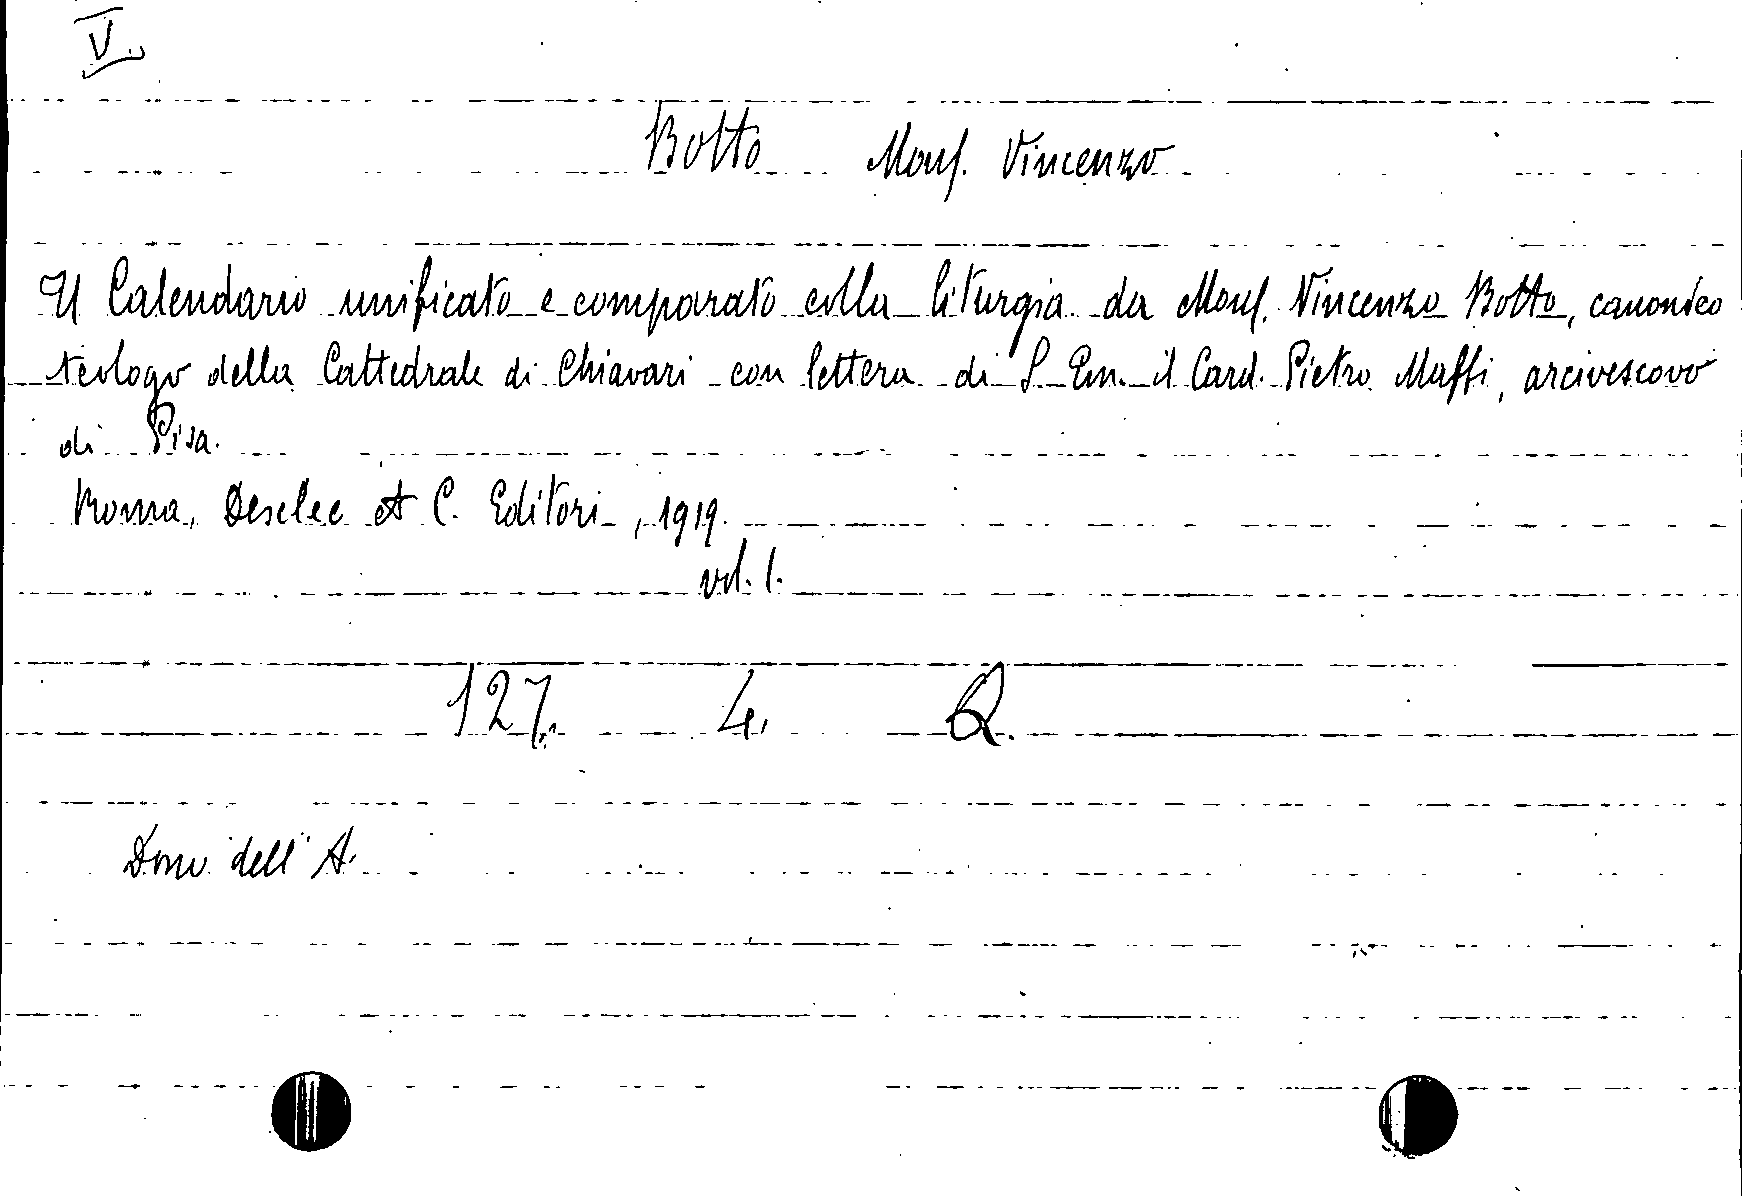 V.
Botto Mons. Vincenzo
Il Calendario unificato e comparato colla liturgia da Mons. Vincenzo Botto, canonico
teologo della Cattedrale di Chiavari con lettera di S. Em. il Card. Pietro Maffi, arcivescovo
di Pisa.
Roma, Desclee et C. Editori, 1919.
vol. 1.
127. 4. Q.
Dono dell'A.